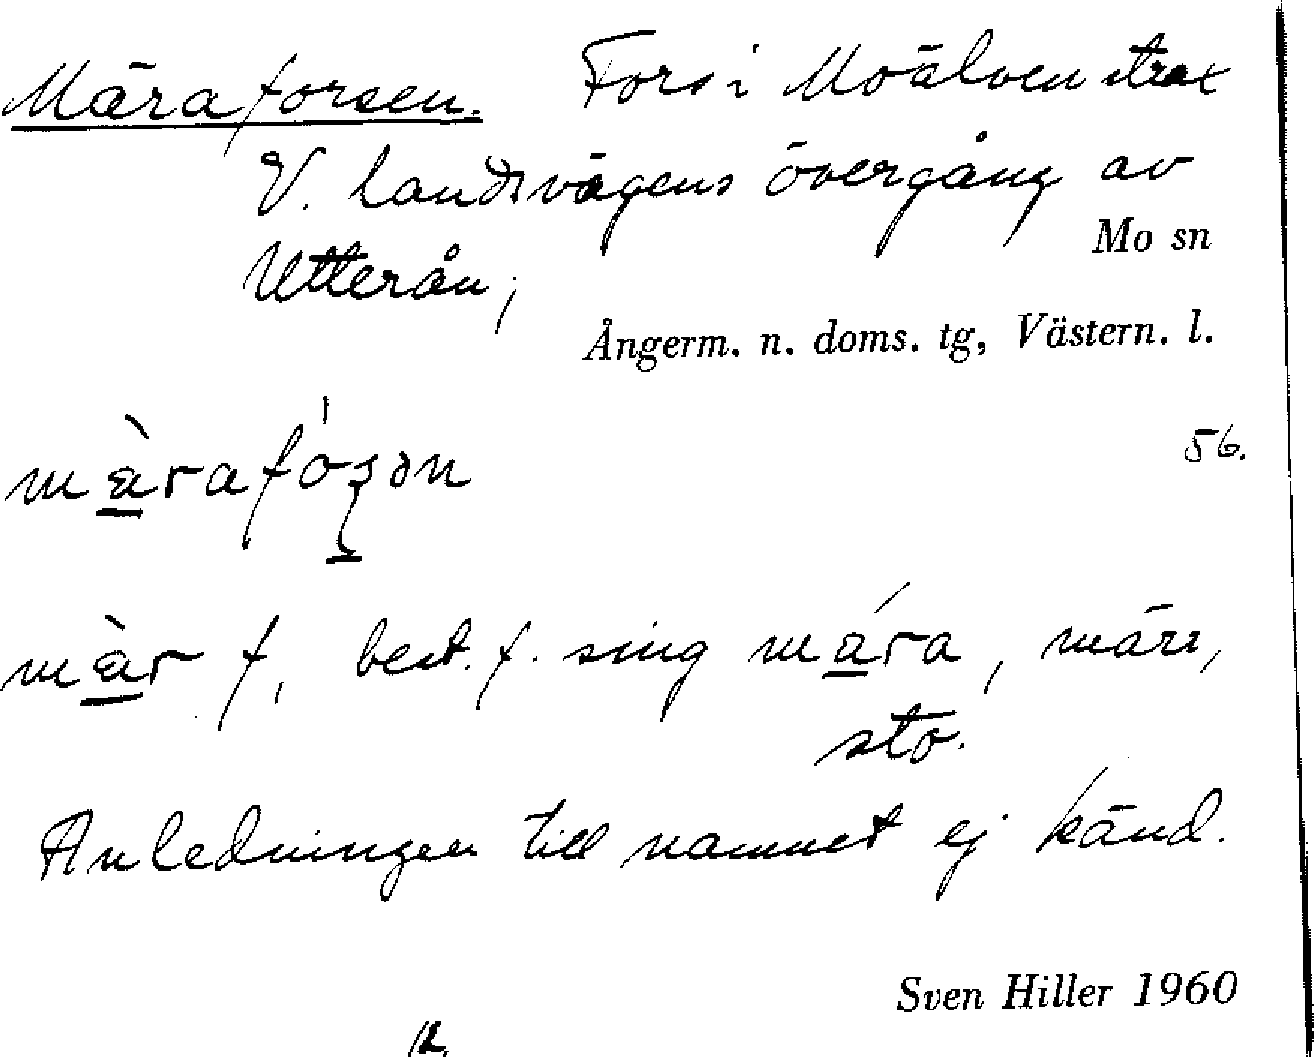 Märaforsen. Fors i Moälven strax
V. landsvägens övergång av
Mo sn
Utterån;
Ångerm. n. doms. tg, Västern. l.
56.
mära̱fó̱şən
mä̱̀r f, best. f. sing mä̱́ra, märr,
sto.
Anledningen till namnet ej känd.
Sven Hiller 1960